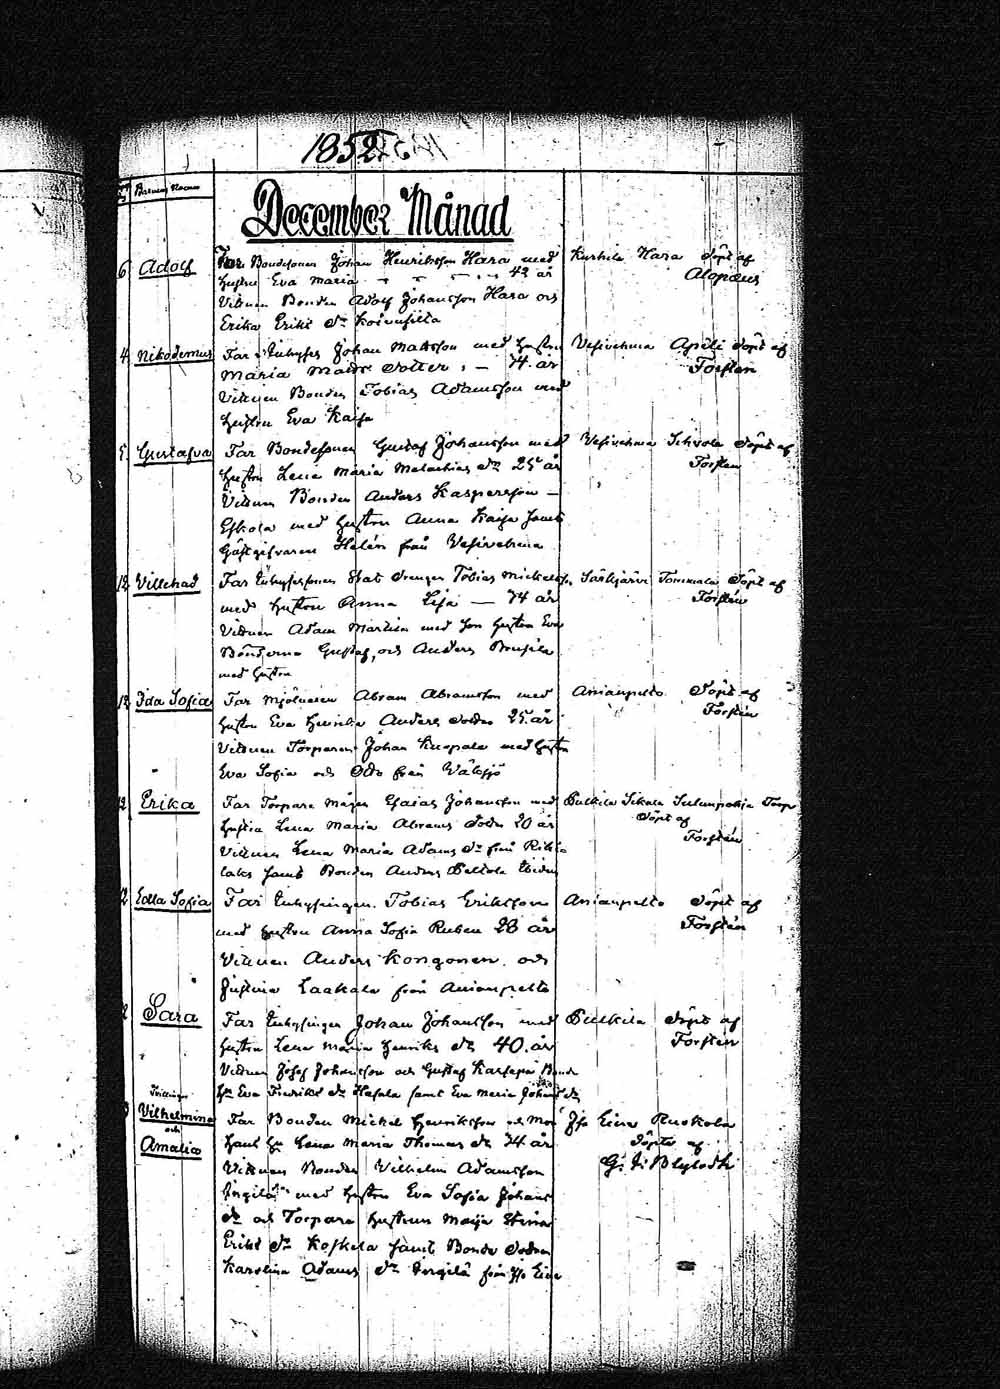 1852
Barnens Namn
December Månad
6 Adolf Far Bondesonen Johan Henriksson Hara med Kurhila Hara Döpt af
hustru Eva Maria 42 år Alopæus
Vittnen Bonden Adolf Johansson Hara och
Erika Eriks dr Koivusilta
4 Nikodemus Far Inhyses Johan Mattsson med hustru Vesivehma Döpt af
Maria Matts dotter 34 år Forstén
Vittnen Bonden Tobias Adamsson med
hustru Eva Kaisa
5 Gustafva Far Bondesonen Gustaf Johansson med Vesivehma Döpt af
hustru Lena Maria Malachias dr 25 år Forstén
Vittnen Bonden Anders Kaspersson
Eskola med hustru Anna Kaisa samt
Gästgifvaren Helén från Vesivehma
12 Villehad Far Tobias Mickelss. Särkjärvi Tommola Döpt af
med hustru Anna Lisa 34 år Forstén
Vittnen Adam Martin med hustru Eva
Bönderna Gustaf och Anders
med hustru
12 Ida Sofia Far Mjölnaren Abram Abramsson med Anianpelto Döpt af
hustru Eva Henrika Anders dotter 25 år Forstén
Vittnen Torparen Johan Kuopala med hustru
Eva Sofia och Otto från
12 Erika Far Torpare Esaias Johansson med Pulkila Torp
hustru Lena Maria Abrams dotter 20 år Döpt af
Vittnen Lena Maria Adams dr från Forstén
samt Bonden Anders Peltola
12 Edla Sofia Far Inhysingen Tobias Eriksson Anianpelto Döpt af
med hustru Anna Sofia Ruben 28 år Forstén
Vittnen Anders Kongonen och
Justina Laakala från Anianpelto
12 Sara Far Inhysingen Johan Johansson med Pulkila Döpt af
hustru Lena Maria Henriks dr 40 år Forstén
Vittnen Josef Johansson och Gustaf
Eva Fredriks dr samt Eva Maria Johans dr
Tvillingar
Vilhelmina Far Bonden Mickel Henriksson och Mor Iso Eina Ruokola
och
Amalia hans hu Lena Maria Thomas dr 34 år Döpte af
Vittnen Bonden Vilhelm Adamsson G. I. Blylodh
Irgilä med hustru Eva Sofia Johans
dr och Torpare hustrun Maija Stina
Eriks dr Koskela samt Bonde dotren
Karolina Adams dr Irgilä från Iso Eina